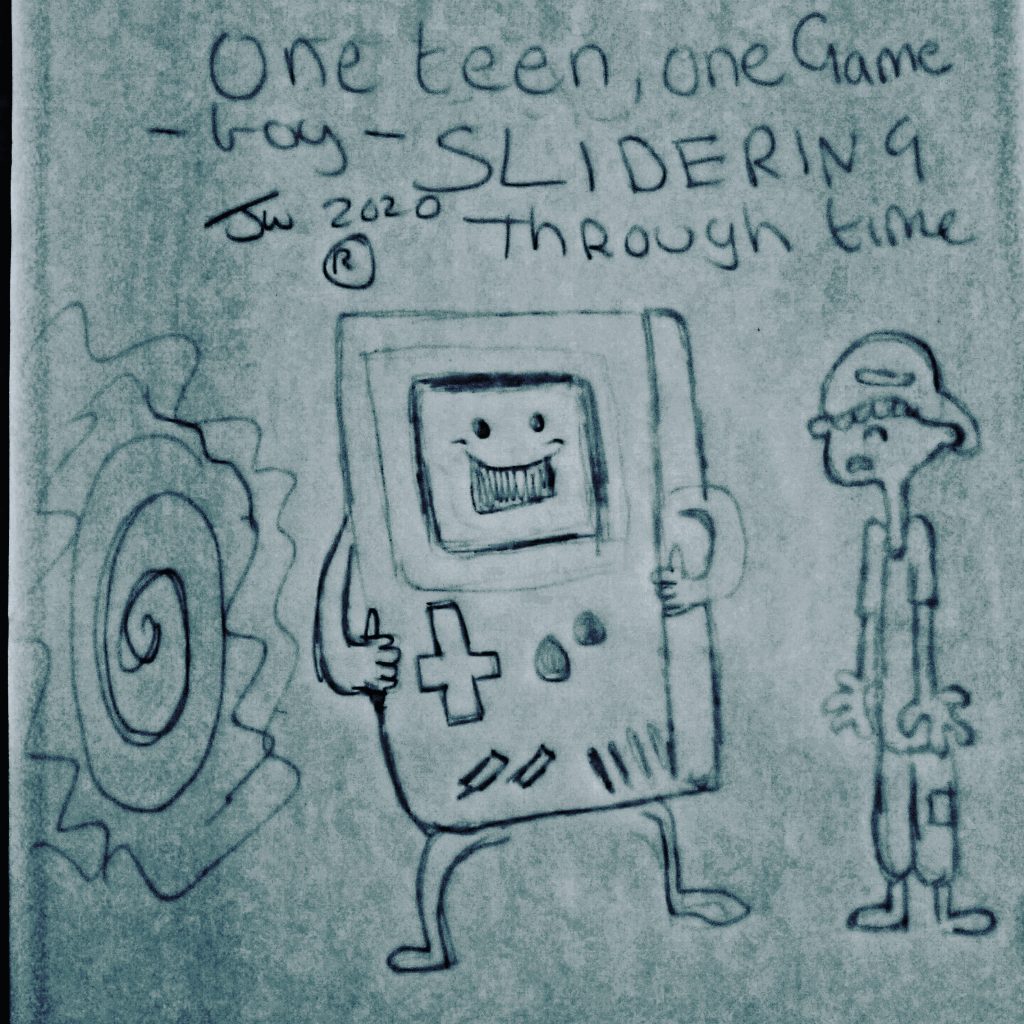 One teen, one Game
-boy- SLIDERING
JW 2020 Through time
®